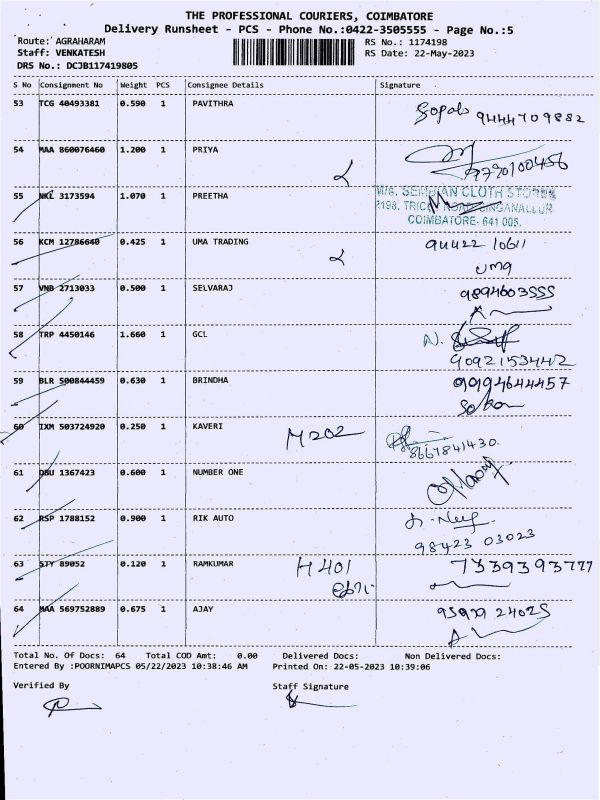 THE PROFESSIONAL COURIERS, COIMBATORE
Delivery Runsheet - PCS - Phone No.:0422-3505555 - Page No.:5
Route: AGRAHARAM
RS No.: 1174198
Staff: VENKATESH
RS Date: 22-May-2023
DRS No.: DCJB117419805
S No Consignment No Weight PCS Consignee Details Signature
53 TCG 40493381 0.590 1 PAVITHRA
9444709882
54 MAA 860076460 1.200 1 PRIYA
55 NKL 3173594 1.070 1 PREETHA
CLOTH
SINGANALLUR
COIMBATORE- 641 005.
56 KCM 12786640 0.425 1 UMA TRADING 94422 10611
uma
57 VNB 2713033 0.500 1 SELVARAJ 9894603555
58 TRP 4450146 1.660 1 GCL
9092153442
59 BLR 500844459 0.630 1 BRINDHA
60 IXM 503724920 0.250 1 KAVERI M202
8667841430
61 DBU 1367423 0.600 1 NUMBER ONE
62 RSP 1788152 0.900 1 RIK AUTO
98423 03023
63 STY 89052 0.120 1 RAMKUMAR H401 7339393777
64 MAA 569752889 0.675 1 AJAY
Total No. Of Docs: 64 Total COD Amt: 0.00 Delivered Docs: Non Delivered Docs:
Entered By :POORNIMAPCS 05/22/2023 10:38:46 AM Printed On: 22-05-2023 10:39:06
Verified By Staff Signature